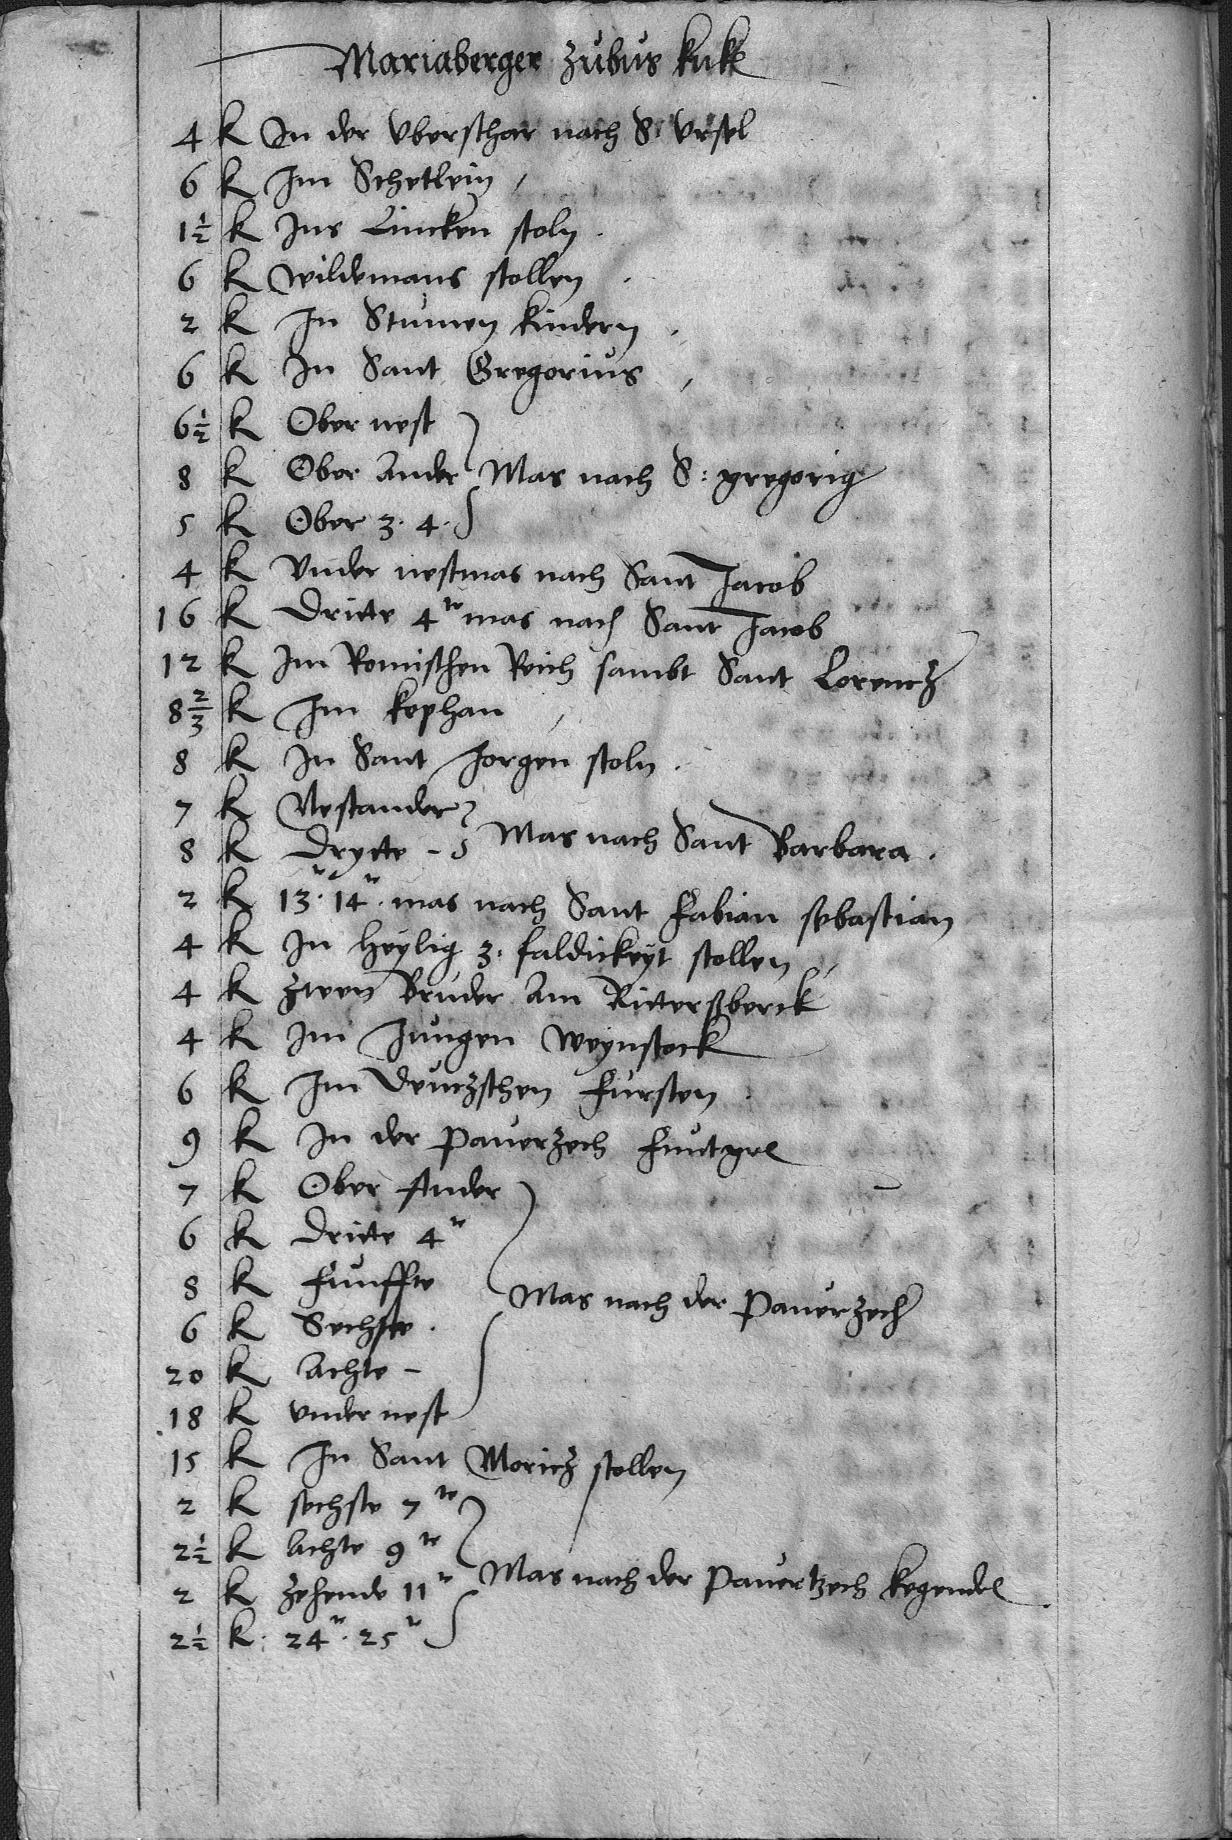 Mariaberger zubus kuk
4 k In der Uberschar nach S: Ursel
6 k Im Schetlein
1½ k Ins Lincken stoln
6 k Wildemans stollen
2 k In Stumen kindern
6 k In Sant Gregorius
6½ k Ober nest
8 k Ober Ander Mas nach S: gregorig
5 k Ober 3. 4.
4 k Under nestmas nach Sant Jacob
16 k Dritte 4te mas nach Sant Jacob
12 k Im Romischen Reich sambt Sant Lorencz
8⅔ k Im kephan
8 k In Sant Jorgen stoln
7 k Nestander
8 k Drytte - Mas nach Sant Barbara
2 k 13te 14te mas nach Sant Fabian sebastian
4 k In heylig 3: faldickeyt stollen
4 k Zwen Bruder Am Rittersberck
4 k Im Jungen Weynstock
6 k Im Deuczschen Fursten
9 k In der Paverzech Funtgr
7 k Ober Ander
6 k Dritte 4te
8 k Funffte Mas nach der Paverzech
6 k Sechste
20 k Achte -
18 k under nest
15 k In Sant Moricz stollen
2 k sechste 7te
2½ k Achte 9te
2 k Zehende 11te Mas nach der Pavertzech kegendel
2½ k 24te 25te